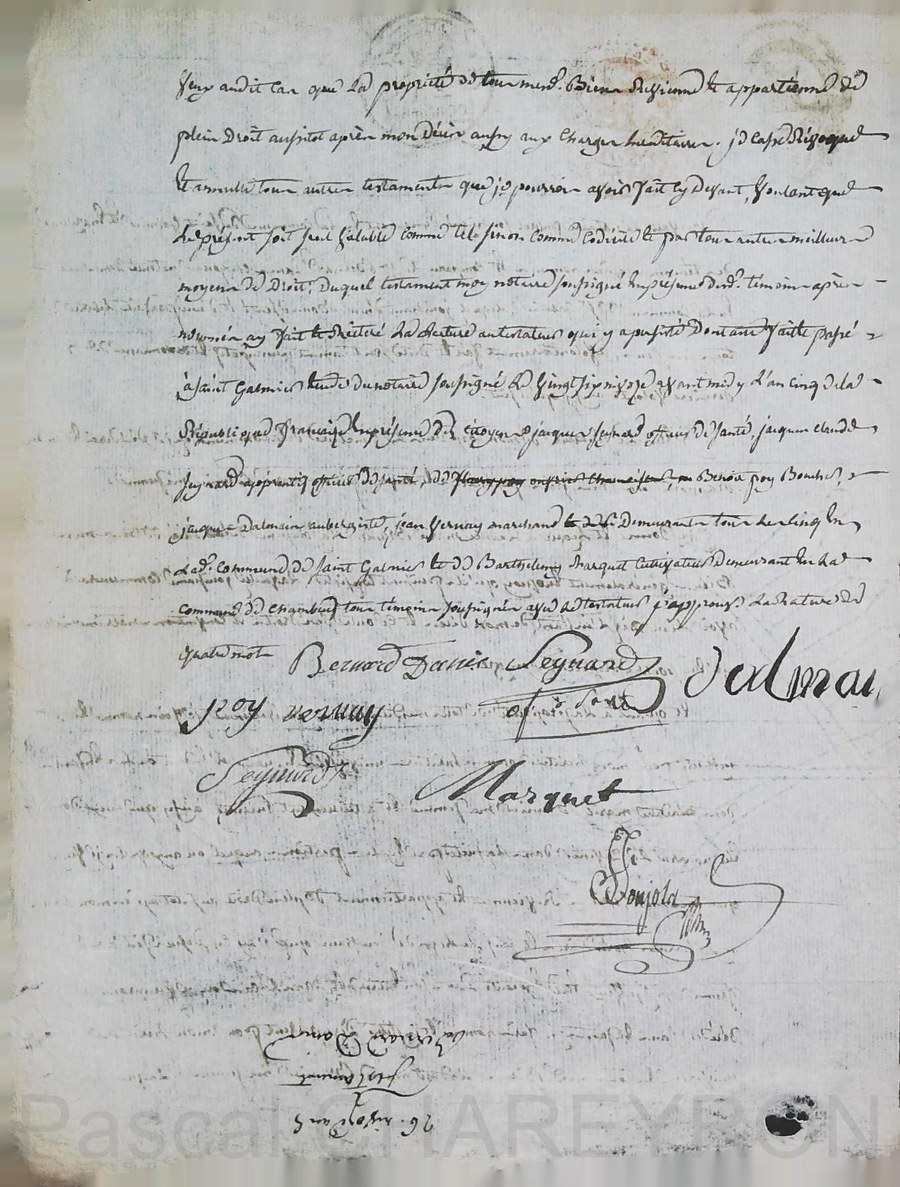 veux audit cas que la propriété de tous mesd. Biens revienne et appartienne de
plein Droit aussitot après mon Décès aux charges héréditaires. je casse Révoque
Et annulle tous autres testaments que je pourrois avoir fait cy devant, voulant que
Le présent soit seul valable comme tel sinon comme codicile et par tous autres meilleurs
moyens de Droit, Duquel testament moy notaire soussigné En présence desd. témoins après
nommés ay fait et Réitéré La Lecture au testateur qui y a persisté Dont acte fait et passé
à Saint Galmier Etude du notaire soussigné Le vingt six nivose avant midy L'an cinq de la
République française En présence des citoyens jacques Seynard officier de santé, jacques claude
Seynard apprenti officier de santé, Benoit poy Boucher,
jacques Dalmais aubergiste, jean Vernay marchand Demeurants tous Les cinq En
Lad. Commune de Saint Galmier et de Barthelemy Marquet Cultivateur Demeurant En La
commune de Chambeuf tous témoins soussignés avec Le testateur j'approuve La Rature de
quatre mots
Bernard Danis Seynard Dalmai
poy vernay off. de santé
Seynard
Marquet
Ponjola
26. nivose an 5
Testament
de Bernard Danis
Pascal CHAREYRON